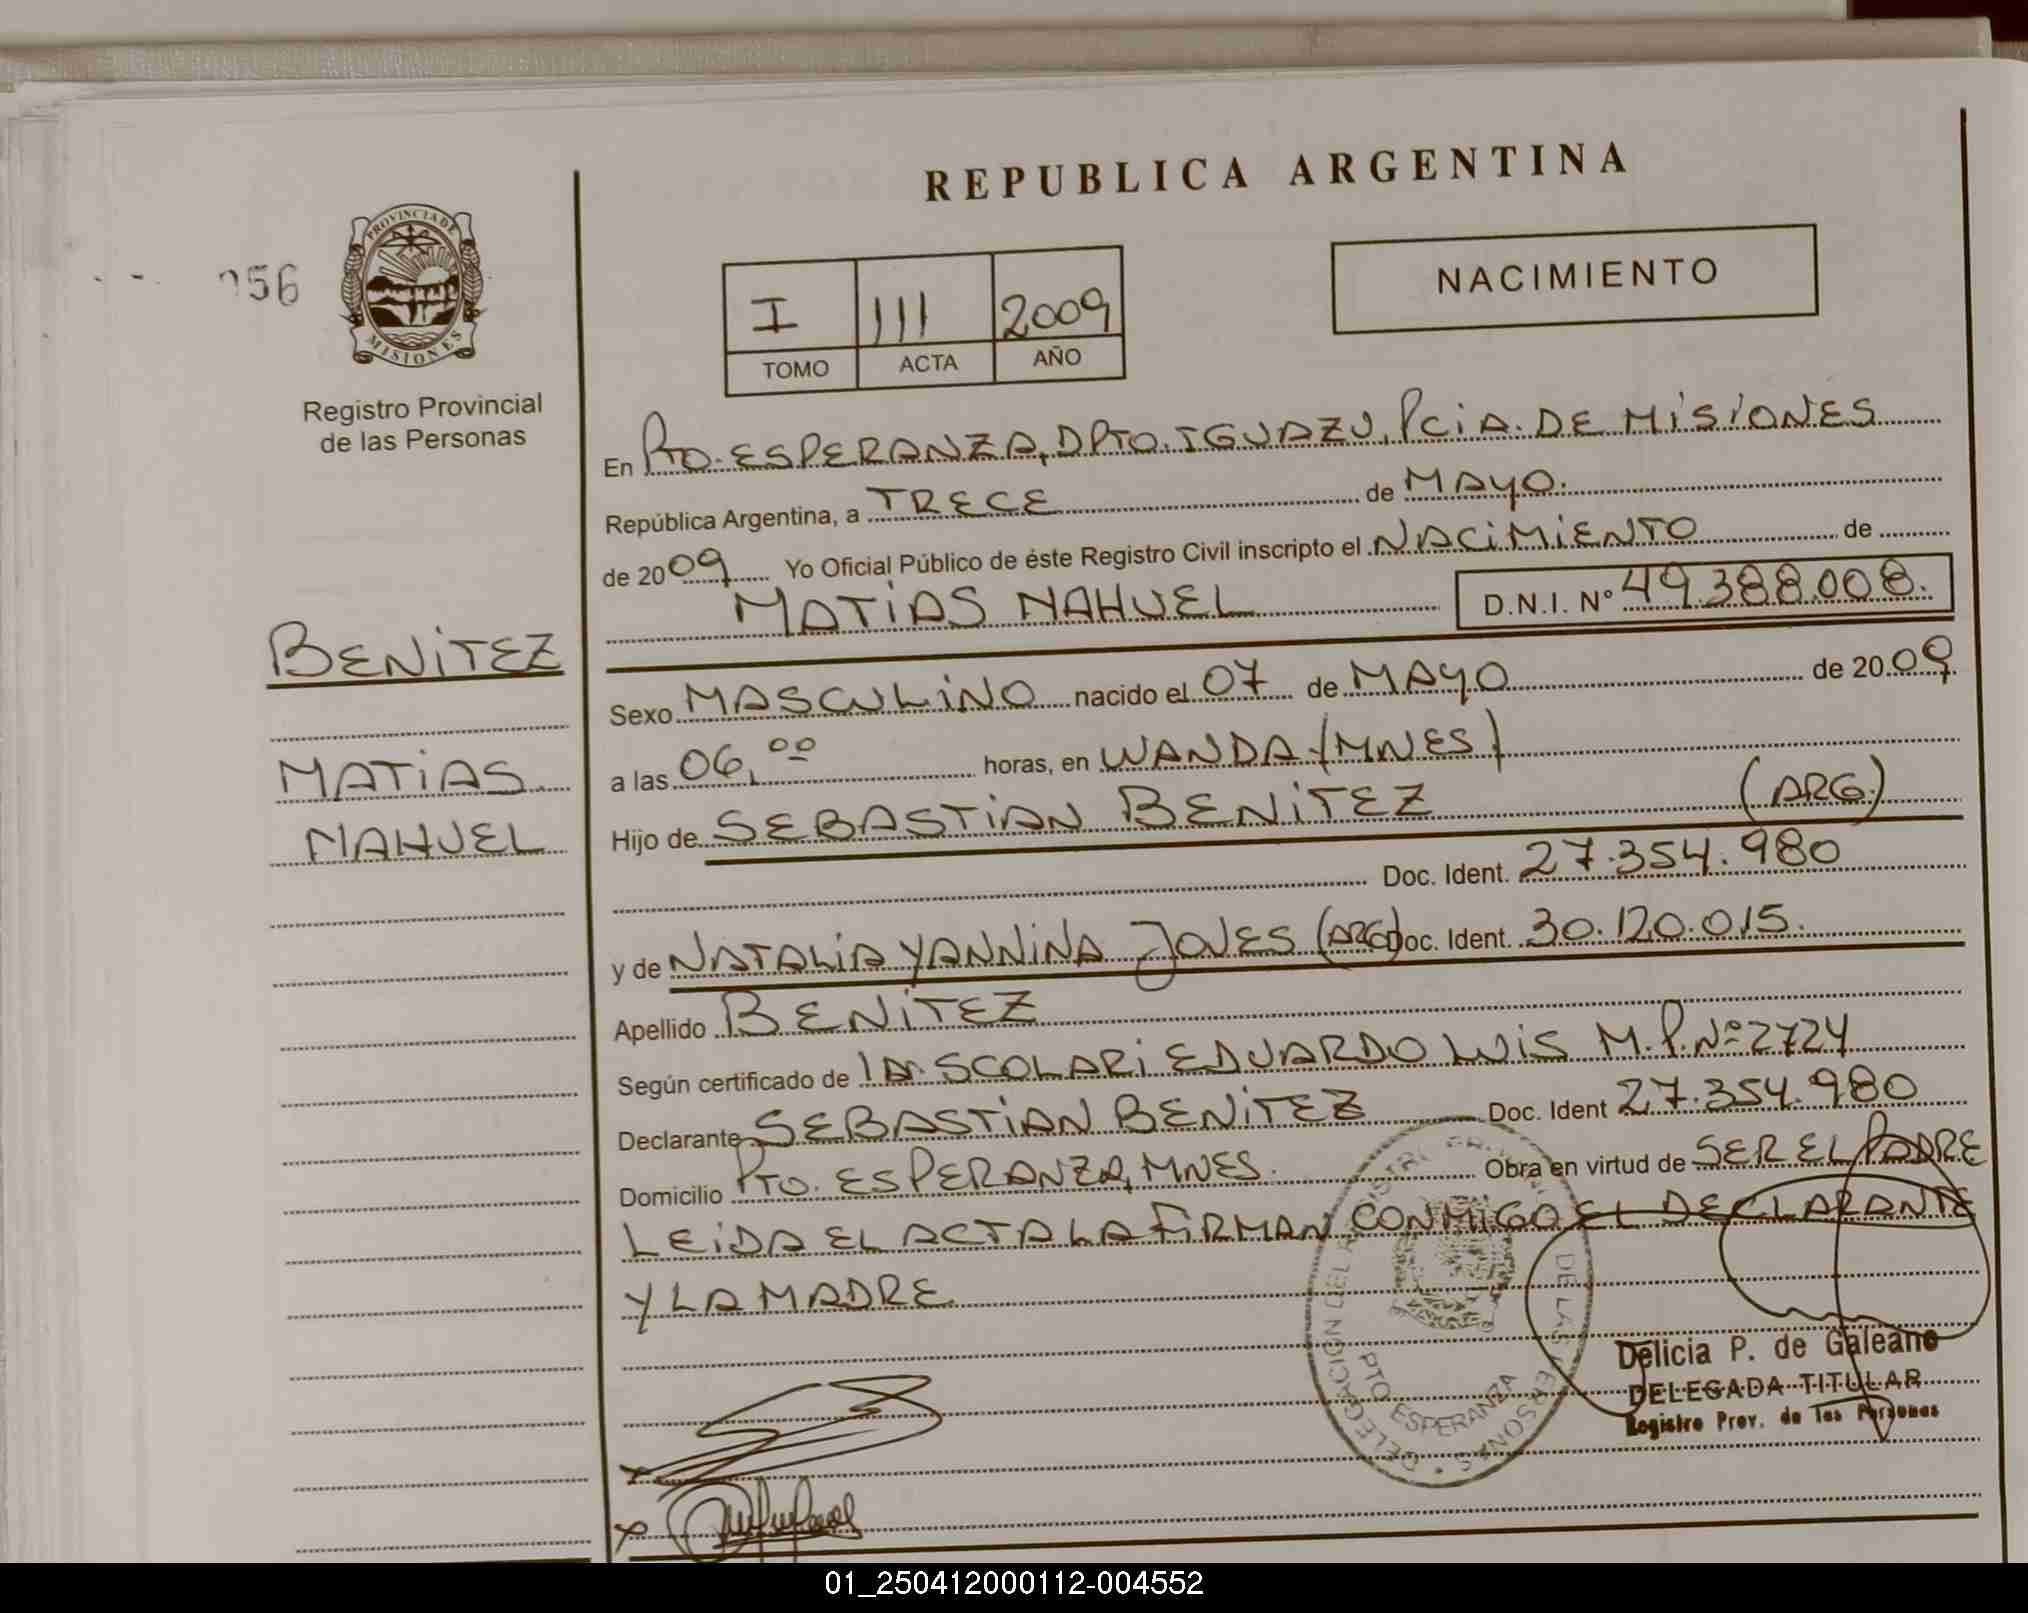 REPUBLICA ARGENTINA
056
PROVINCIA DE
MISIONES
Registro Provincial
de las Personas
I 111 2009
TOMO ACTA AÑO
NACIMIENTO
En PTO. ESPERANZA, DPTO. IGUAZU, PCIA. DE MISIONES
República Argentina, a TRECE de MAYO.
de 2009 Yo Oficial Público de éste Registro Civil inscripto el NACIMIENTO de
MATIAS NAHUEL D.N.I. Nº 49.388.008.
BENITEZ
MATIAS.
NAHUEL
Sexo MASCULINO nacido el 07 de MAYO de 2009.
a las 06,00 horas, en WANDA (MNES)
Hijo de SEBASTIAN BENITEZ (ARG.)
Doc. Ident. 27.354.980
y de NATALIA YANNINA JONES (ARG) Doc. Ident. 30.120.015.
Apellido BENITEZ
Según certificado de SCOLARI EDUARDO LUIS M.P. Nº 2724
Declarante SEBASTIAN BENITEZ Doc. Ident 27.354.980
Domicilio PTO. ESPERANZA, MNES. Obra en virtud de SER EL PADRE
LEIDA EL ACTA LA FIRMAN CONMIGO EL DECLARANTE
Y LA MADRE.
DELEGACION DEL REGISTRO PROVINCIAL DE LAS PERSONAS
PTO ESPERANZA
Delicia P. de Galeano
DELEGADA TITULAR
Registro Prov. de las Personas
01_250412000112-004552